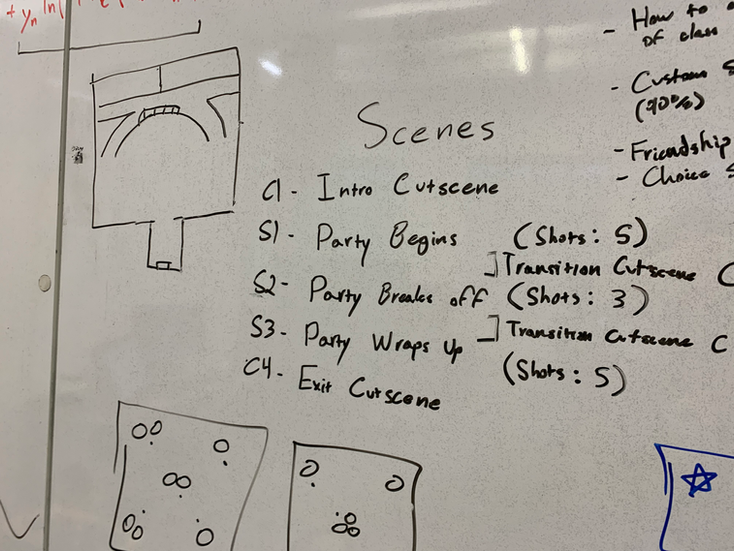 - How to
of class
- Custom
(90%)
- Friendship
- Choice
Scenes
C1 - Intro Cutscene
S1 - Party Begins (Shots: 5)
] Transition Cutscene C
S2 - Party Breaks off (Shots: 3)
] Transition Cutscene C
S3 - Party Wraps up
(Shots: 5)
C4 - Exit Cutscene